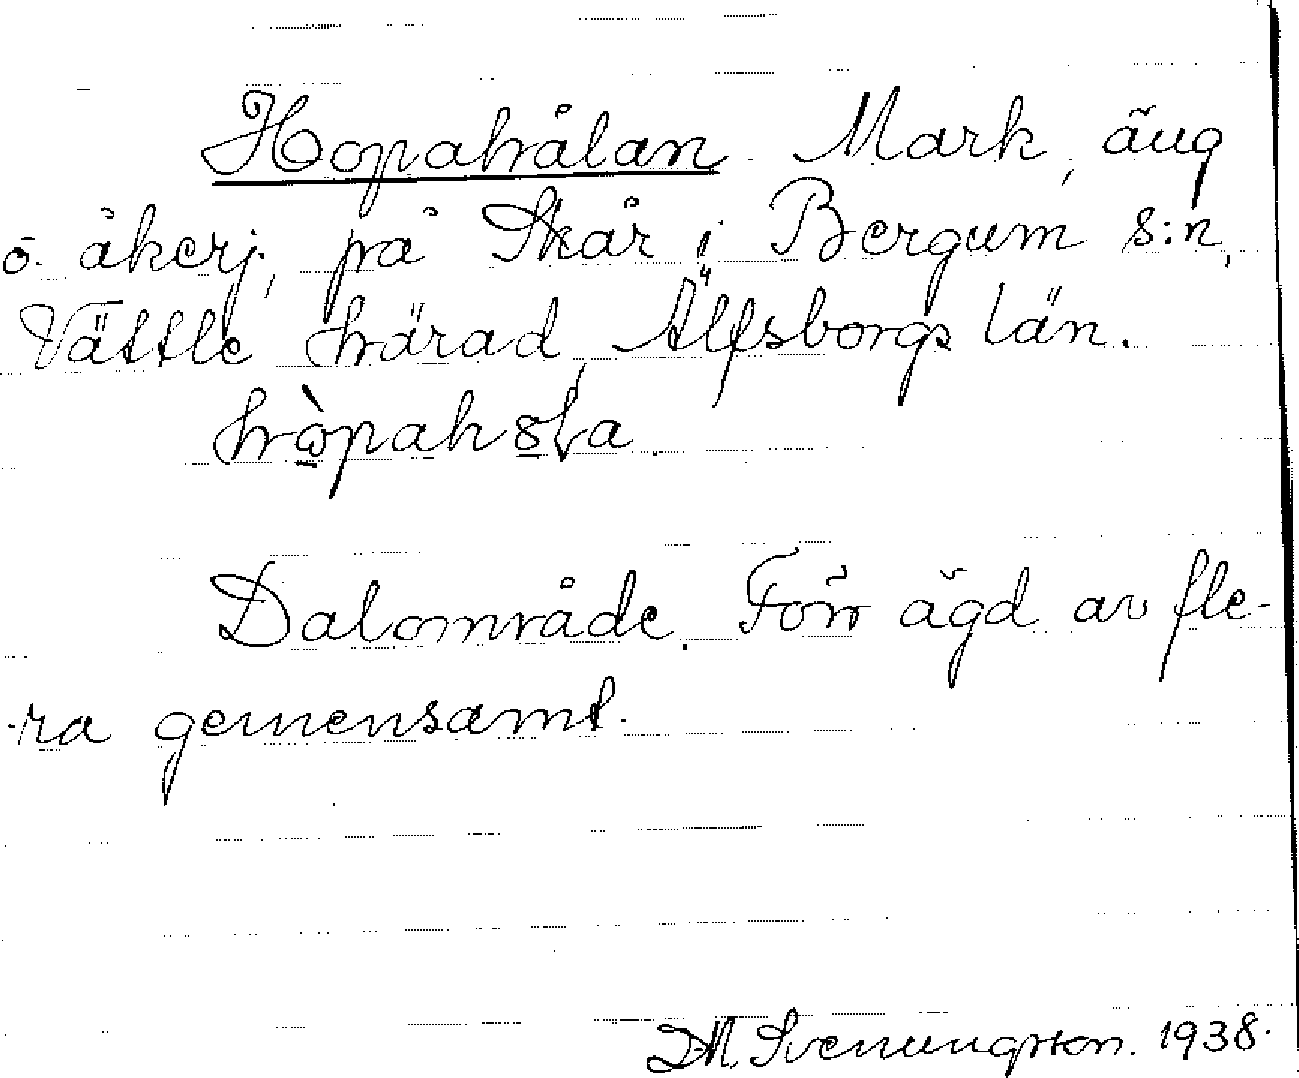 Hopahålan. Mark, äng
o. åkerj., på Skår i Bergum s:n,
Vättle härad, Älfsborgs län.
Dalområde. Förr ägd av fle-
-ra gemensamt.
D.M. Svenungsson. 1938.